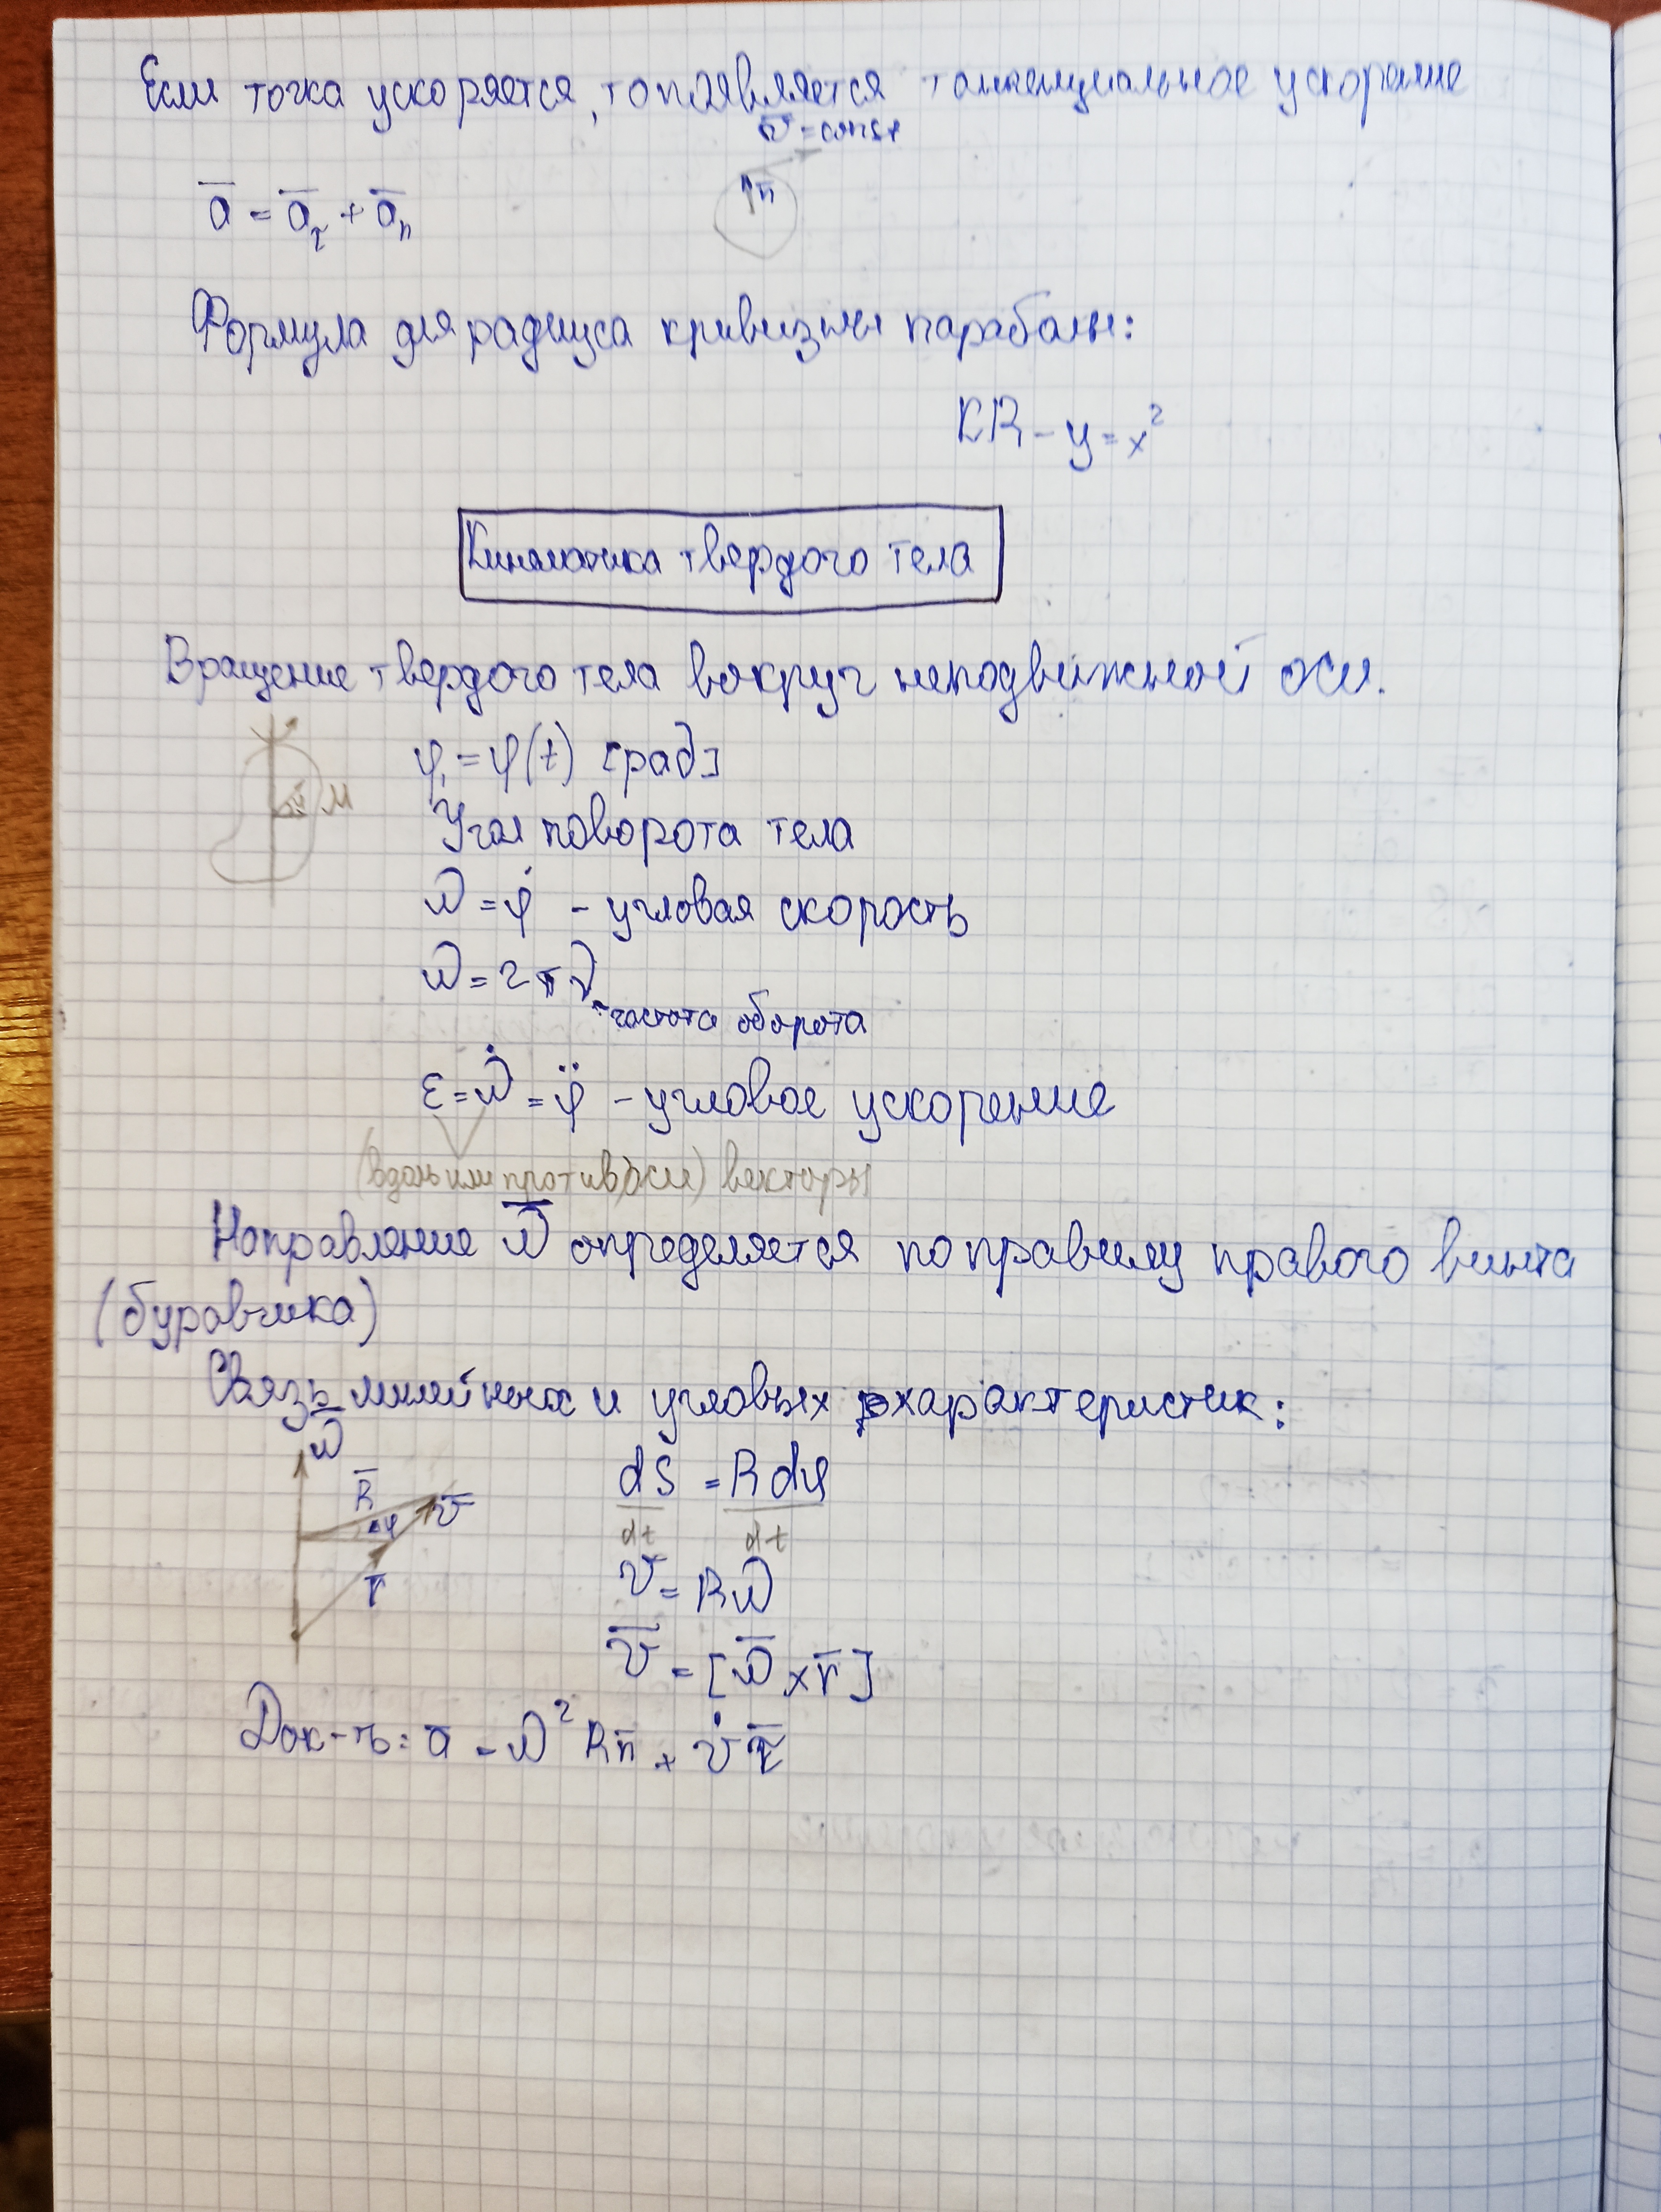 Если точка ускоряется, то появляется тангенциальное ускорение
v̅ = const
a̅ = a̅τ + a̅n
n̅
Формула для радиуса кривизны параболы:
KR - y = x²
Кинематика твердого тела
Вращение твердого тела вокруг неподвижной оси.
φ = φ(t) [рад]
M
Угол поворота тела
ω = φ̇ - угловая скорость
ω = 2πν
- частота оборота
ε = ω̇ = φ̈ - угловое ускорение
(вдоль или против оси) векторы
Направление ω̅ определяется по правилу правого винта
(буравчика)
Связь линейных и угловых характеристик:
ω̅
dS/dt = Rdφ/dt
R̅
φ
v̅
v = Rω
r̅
v̅ = [ω̅ × r̅]
Док-ть: a̅ = ω²Rn̅ + v̇τ̅